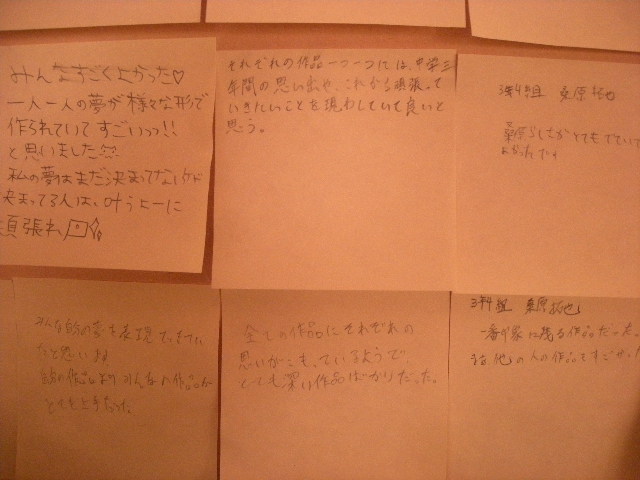 みんなすごくよかった♡
一人一人の夢が様々な形で
作られていてすごいっっ!!
と思いました
私の夢はまだ決まってないけど
決まってる人は、叶うよーに
頑張れ
それぞれの作品一つ一つには、中学三
年間の思い出や、これから頑張って
いきたいことを現わしていて良いと
思う。
3年4組 桑原拓也
桑原らしさがとてもでていて
よかったです
みんな自分の夢を表現できてい
たと思います
自分の作品よりみんなの作品が
とても上手だった
全ての作品にそれぞれの
思いがこもっているようで、
とても深い作品ばかりだった。
3年4組 桑原拓也
一番印象に残る作品だった。
他の人の作品もすごかった